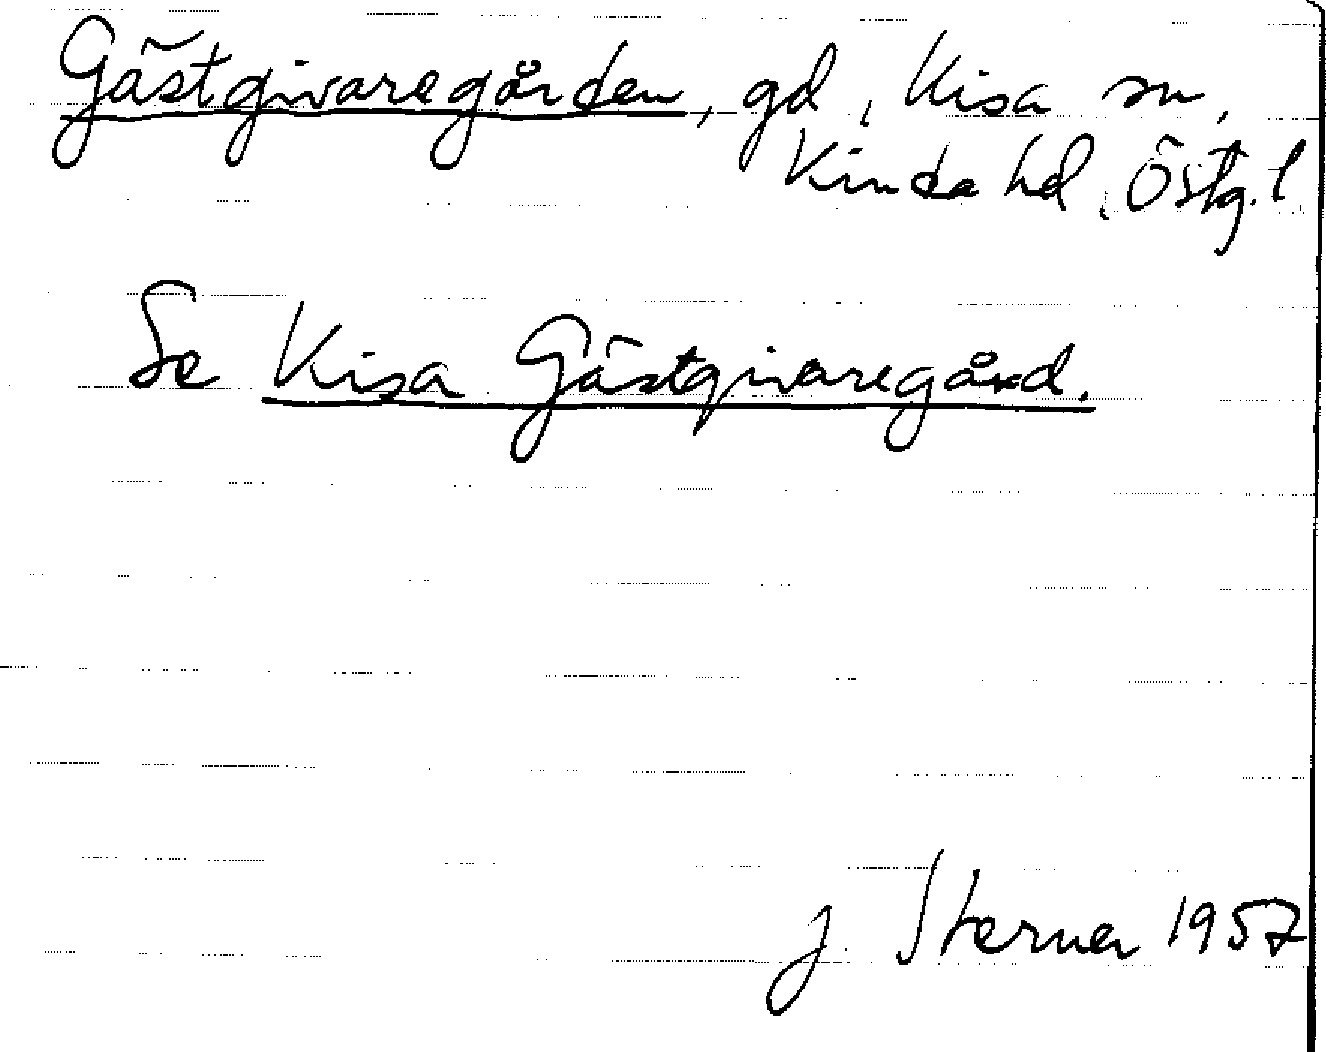 Gästgivaregården, gd, Kisa sn,
Kinda hd, Östg. l.
Se Kisa Gästgivaregård.
J. Sterner 1957